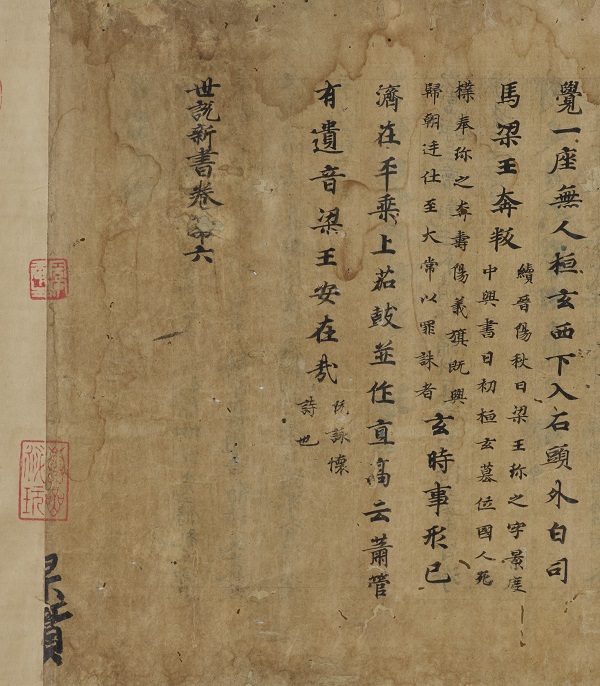 覺一座無人桓玄西下入石頭外白司
馬梁王奔叛
續晉陽秋曰梁王珎之字景度
中興書曰初桓玄簒位國人孔
樸奉珎之奔壽陽義旗既興
歸朝廷仕至大常以罪誅者
玄時事形已
濟在平乘上茄鼓並作直高云蕭管
有遺音梁王安在哉
阮詠懷
詩也
世說新書卷第六